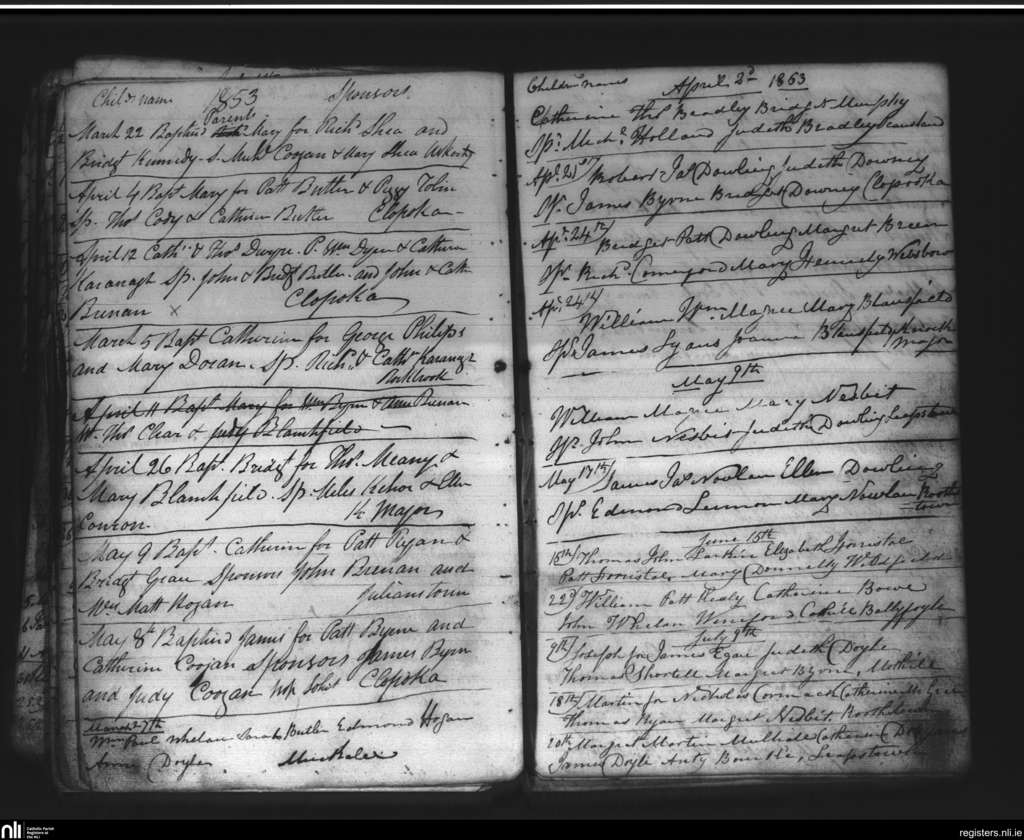 Childs name 1853 Sponsors
Parents
March 22 Baptised Mary for Richd Shea and
Bridgt Kennedy S. Michl Coogan & Mary Shea
April 4 Bapt Mary for Patt Butler & Peggy Tobin
Sp. Thos Cody & Catherin Butler Clopoka
April 12 Cath. & Thos Dwyer P. Wm Dyer & Catherin
Kavanagh Sp. John & Bridgt Butler and John & Cath
Brenan x Clopoka
March 5 Bapt Catherine for George Philips
and Mary Doran Sp. Richd & Cathn Kavanagh
Rockbrook
April 11 Bapt Mary for Wm Byrn & Ann Brenan
Thos Clear & Judy Blanchfield
April 26 Bapt. Bridgt for Thos. Meany &
Mary Blanchfield Sp. Miles Kehoe & Ellen
Conron K Major
May 9 Bapt. Catherin for Patt Ryan &
Bridgt Grau Sponsors John Brenan and
Matt Hogan Julianstown
May 8th Baptised James for Patt Byrne and
Catherine Coogan Sponsors James Byrn
and Judy Coogan Clopoka
March 7th
Paul Whelan Sarah Butler Edmond Hogan
Anne Doyle
Childrens names April 2d 1853
Catherine Thos Bradley Bridget Murphy
Sps. Michl Holland Judith Bradley
Apl 25 Robert Jas Dowling Judith Downey
Sps. James Byrne Bridget Downey Clopooka
Apl. 24th Bridget Patt Dowling Margret Breen
Sps Richd Comerford Mary Hennely
Apl. 24th
William Wm Magee Mary Blanchfield
Sps James Lyons Joanna Knock
Major
May 9th
William Magee Mary Nesbit
Sps. John Nesbit Judith Dowling
May 17th James Jas Nowlan Ellen Dowling
Sps. Edmond Lennon Mary Nowlan
town
June 15th
15th Thomas John Elizabeth Forrestal
Patt Forrestal Mary Donnelly
22d William Patt Healy Catherine Bowe
John Whelan Winefred Ballyfoyle
July 9th
9th Joseph for James Egan Judith Doyle
Thomas Shortell Margret Byrne, Mothill
18th Martin for Nicholas Cormack Catherine
Thomas Ryan Margret Nesbit
20th Margret Martin Mulhall Catherine
James Doyle Anty Bourke,
nli Catholic Parish
Registers at
the NLI
registers.nli.ie